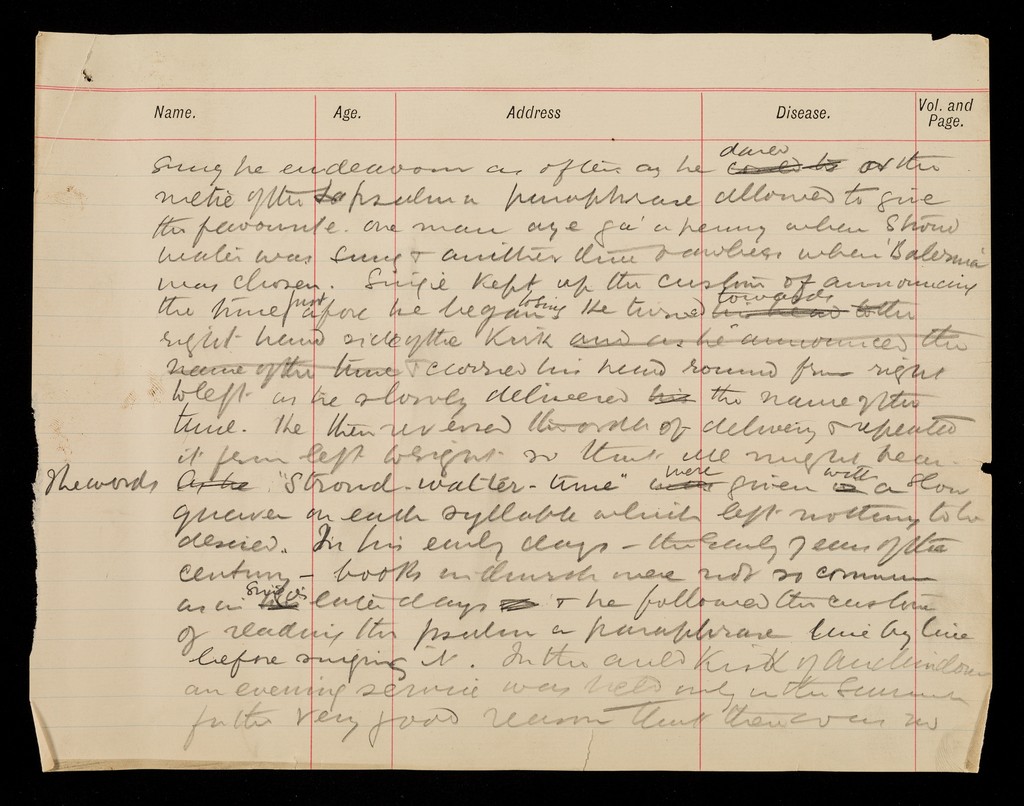 Name. Age. Address Disease. Vol. and Page.
dared
sung he endeavour as often as he could to as the
metre of the to psalm or paraphrase allowed to give
the favourite. One man aye ga' a penny when Stroud
water was sung & another when Balerma
was chosen. Singie kept up the custom of announcing
just tosing towards
the tune afore he began He turned his head to the
right hand side of the Kirk and as he announced the
name of the tune & carried his head round from right
to left as he slowly delivered his the name of the
tune. He then reversed the order of delivery & repeated
it from left to right so that all might hear.
were with
The words As he "Stroud-watter-tune" was given in a slow
quaver on each syllable which left nothing to be
desired. In his early days - the early years of the
century - books in church were not so common
Singie's
as in his later days & he followed the custom
of reading the psalm or paraphrase line by line
before singing it. In the auld Kirk of
an evening service was held only in the Summer
for the very good reason that there was no